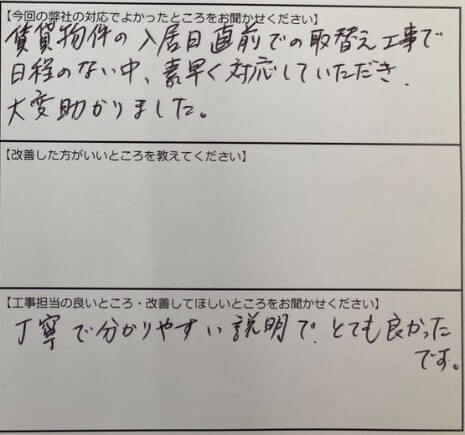 【今回の弊社の対応でよかったところをお聞かせください】
賃貸物件の入居日直前での取替え工事で
日程のない中、素早く対応していただき、
大変助かりました。
【改善した方がいいところを教えてください】
【工事担当の良いところ・改善してほしいところをお聞かせください】
丁寧で分かりやすい説明で、とても良かった
です。